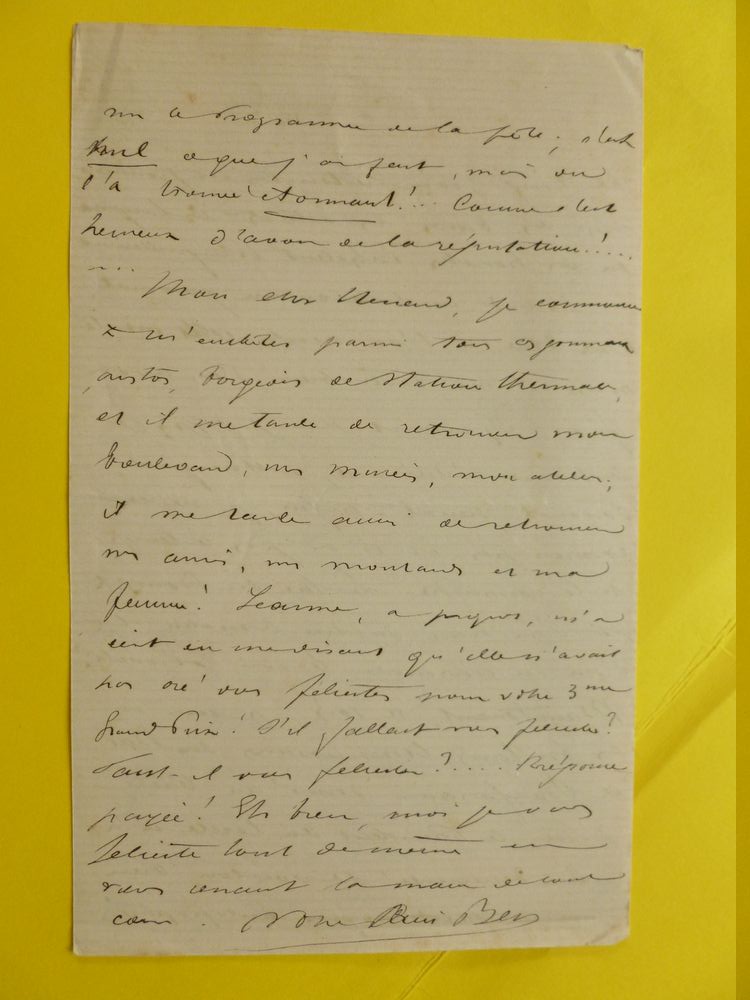 un Programme de la fête ; c'est
nul ce que j'ai fait, mais on
l'a trouvé étonnant !.. Comme c'est
heureux d'avoir de la réputation !...
...
Mon cher, je commence
à m'embêter parmi tous ces
bourgeois de station thermale,
et il me tarde de retrouver mon
boulevard, mes, mon atelier,
il me tarde aussi de retrouver
mes amis, mes moutards et ma
femme ! Jeanne, à propos, m'a
écrit en me disant qu'elle n'avait
pas osé vous féliciter pour votre 3me
Grand Prix ! S'il fallait vous féliciter ?
Faut-il vous féliciter ?.... Réponse
payée ! Eh bien, moi je vous
félicite tout de même en
vous serrant la main de tout
cœur. Votre